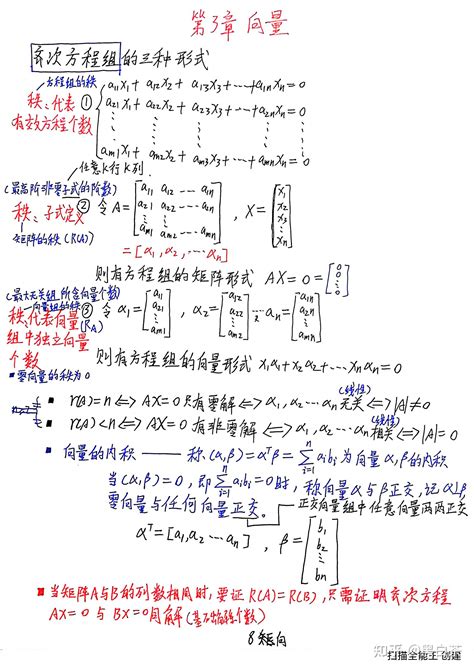 第3章 向量
齐次方程组的三种形式
方程组的秩
秩、代表
有效方程个数
①
a11x1 + a12x2 + a13x3 + ⋯ + a1nxn = 0
a21x1 + a22x2 + a23x3 + ⋯ + a2nxn = 0
⋮ ⋮ ⋮ ⋮
am1x1 + am2x2 + am3x3 + ⋯ + amnxn = 0
任意K行K列
(最高阶非零子式的阶数)
秩、子式定义
矩阵的秩(R(A))
② 令 A = [a11 a12 ⋯ a1n; a21 a22 ⋯ a2n; ⋮; am1 am2 ⋯ amn] , X = [x1 x2 x3 ⋮ xn]
= [α1, α2, ⋯ αn]
则有方程组的矩阵形式 AX = 0 = [0 0 ⋮ 0]
(最大无关组所含向量个数)
向量组的秩
秩、代表向量
(RA)
组中独立向量
个数
③ 令 α1 = [a11 a21 ⋮ am1] , α2 = [a12 a22 ⋮ am2] ⋯ αn = [a1n a2n ⋮ amn]
则有方程组的向量形式 x1α1 + x2α2 + ⋯ xnαn = 0
▪零向量的秩为0
(线性)
▪ r(A) = n ⟺ AX = 0 只有零解 ⟺ α1, α2 ⋯ αn 无关 ⟺ |A| ≠ 0
(线性)
▪ r(A) < n ⟺ AX = 0 有非零解 ⟺ α1, α2 ⋯ αn 相关 ⟺ |A| = 0
▪ 向量的内积 —— 称(α,β) = αᵀβ = Σ(i=1→n) aibi 为向量α,β的内积
当(α,β) = 0, 即 Σ(i=1→n) aibi = 0时, 称向量α与β正交, 记α⊥β
零向量与任何向量正交。
正交向量组中任意向量两两正交
αᵀ = [a1, a2 ⋯ an] , β = [b1 b2 ⋮ bn]
▪ 当矩阵A与B的列数相同时, 要证R(A) = R(B), 只需证明齐次方程
AX = 0 与 BX = 0 同解(基础解系个数)
知乎
扫描全能王 创建